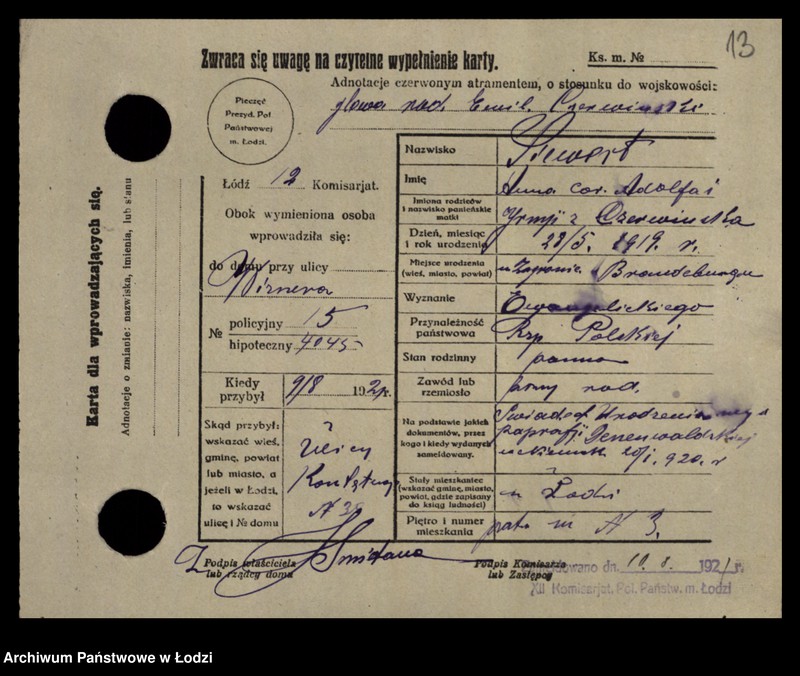 13
Zwraca się uwagę na czytelne wypełnienie karty.
Ks. m. №
Adnotacje czerwonym atramentem, o stosunku do wojskowości:
głowa rod. Emil. Czerwiński
Pieczęć
Prezyd. Pol.
Państwowej
m. Łodzi.
Karta dla wprowadzających się.
Adnotacje o zmianie: nazwiska, imienia, lub stanu
Łódź 12 Komisarjat.
Obok wymieniona osoba
wprowadziła się:
do domu przy ulicy
Wiznera
№ policyjny 15
hipoteczny 4045
Kiedy przybył 9/8 192
Skąd przybył:
wskazać wieś,
gminę, powiat
lub miasto, a
jeżeli w Łodzi,
to wskazać
ulicę i № domu
Ulicy
N
Nazwisko
Imię Anna cór. Adolfa i
Imiona rodziców
i nazwisko panieńskie
matki
z Czerwińska
Dzień, miesiąc
i rok urodzenia
28/5. 1919. r.
Miejsce urodzenia
(wieś, miasto, powiat)
w Brandeburgu
Wyznanie Ewangelickiego
Przynależność
państwowa
Rzp. Polskiej
Stan rodzinny panna
Zawód lub
rzemiosło
przy rod.
Na podstawie jakich
dokumentów, przez
kogo i kiedy wydanych
zameldowany.
Świadec. Urodzenia
parafji
920. r
Stały mieszkaniec
(wskazać gminę, miasto,
powiat, gdzie zapisany
do ksiąg ludności)
m Łodzi
Piętro i numer
mieszkania
part. m N 3.
Podpis właściciela
lub rządcy domu
Smidana
Podpis Komisarza
lub Zastępcy
dn. 10. 8. 1921 r.
XII Komisarjat. Pol. Państw. m. Łodzi
Archiwum Państwowe w Łodzi